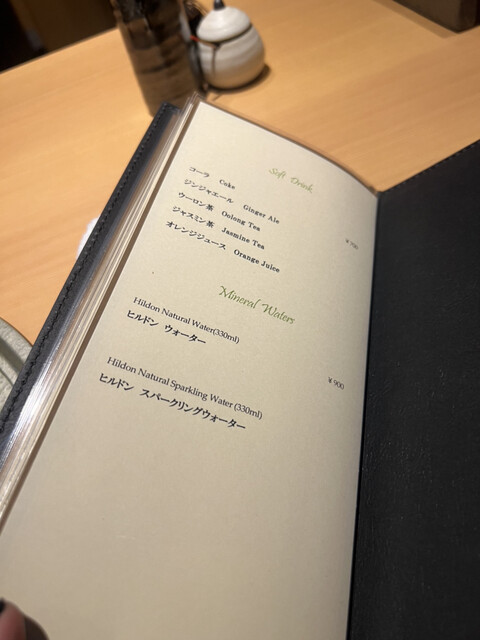 Soft Drink
コーラ Coke
ジンジャエール Ginger Ale
ウーロン茶 Oolong Tea
ジャスミン茶 Jasmine Tea
オレンジジュース Orange Juice
¥750
Mineral Waters
Hildon Natural Water(330ml)
ヒルドン ウォーター
¥900
Hildon Natural Sparkling Water (330ml)
ヒルドン スパークリングウォーター